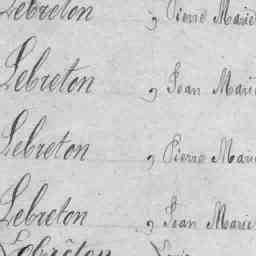 Lebreton, Pierre Marie
Lebreton, Jean Marie
Lebreton, Pierre Marie
Lebreton, Jean Marie
Lebrêton